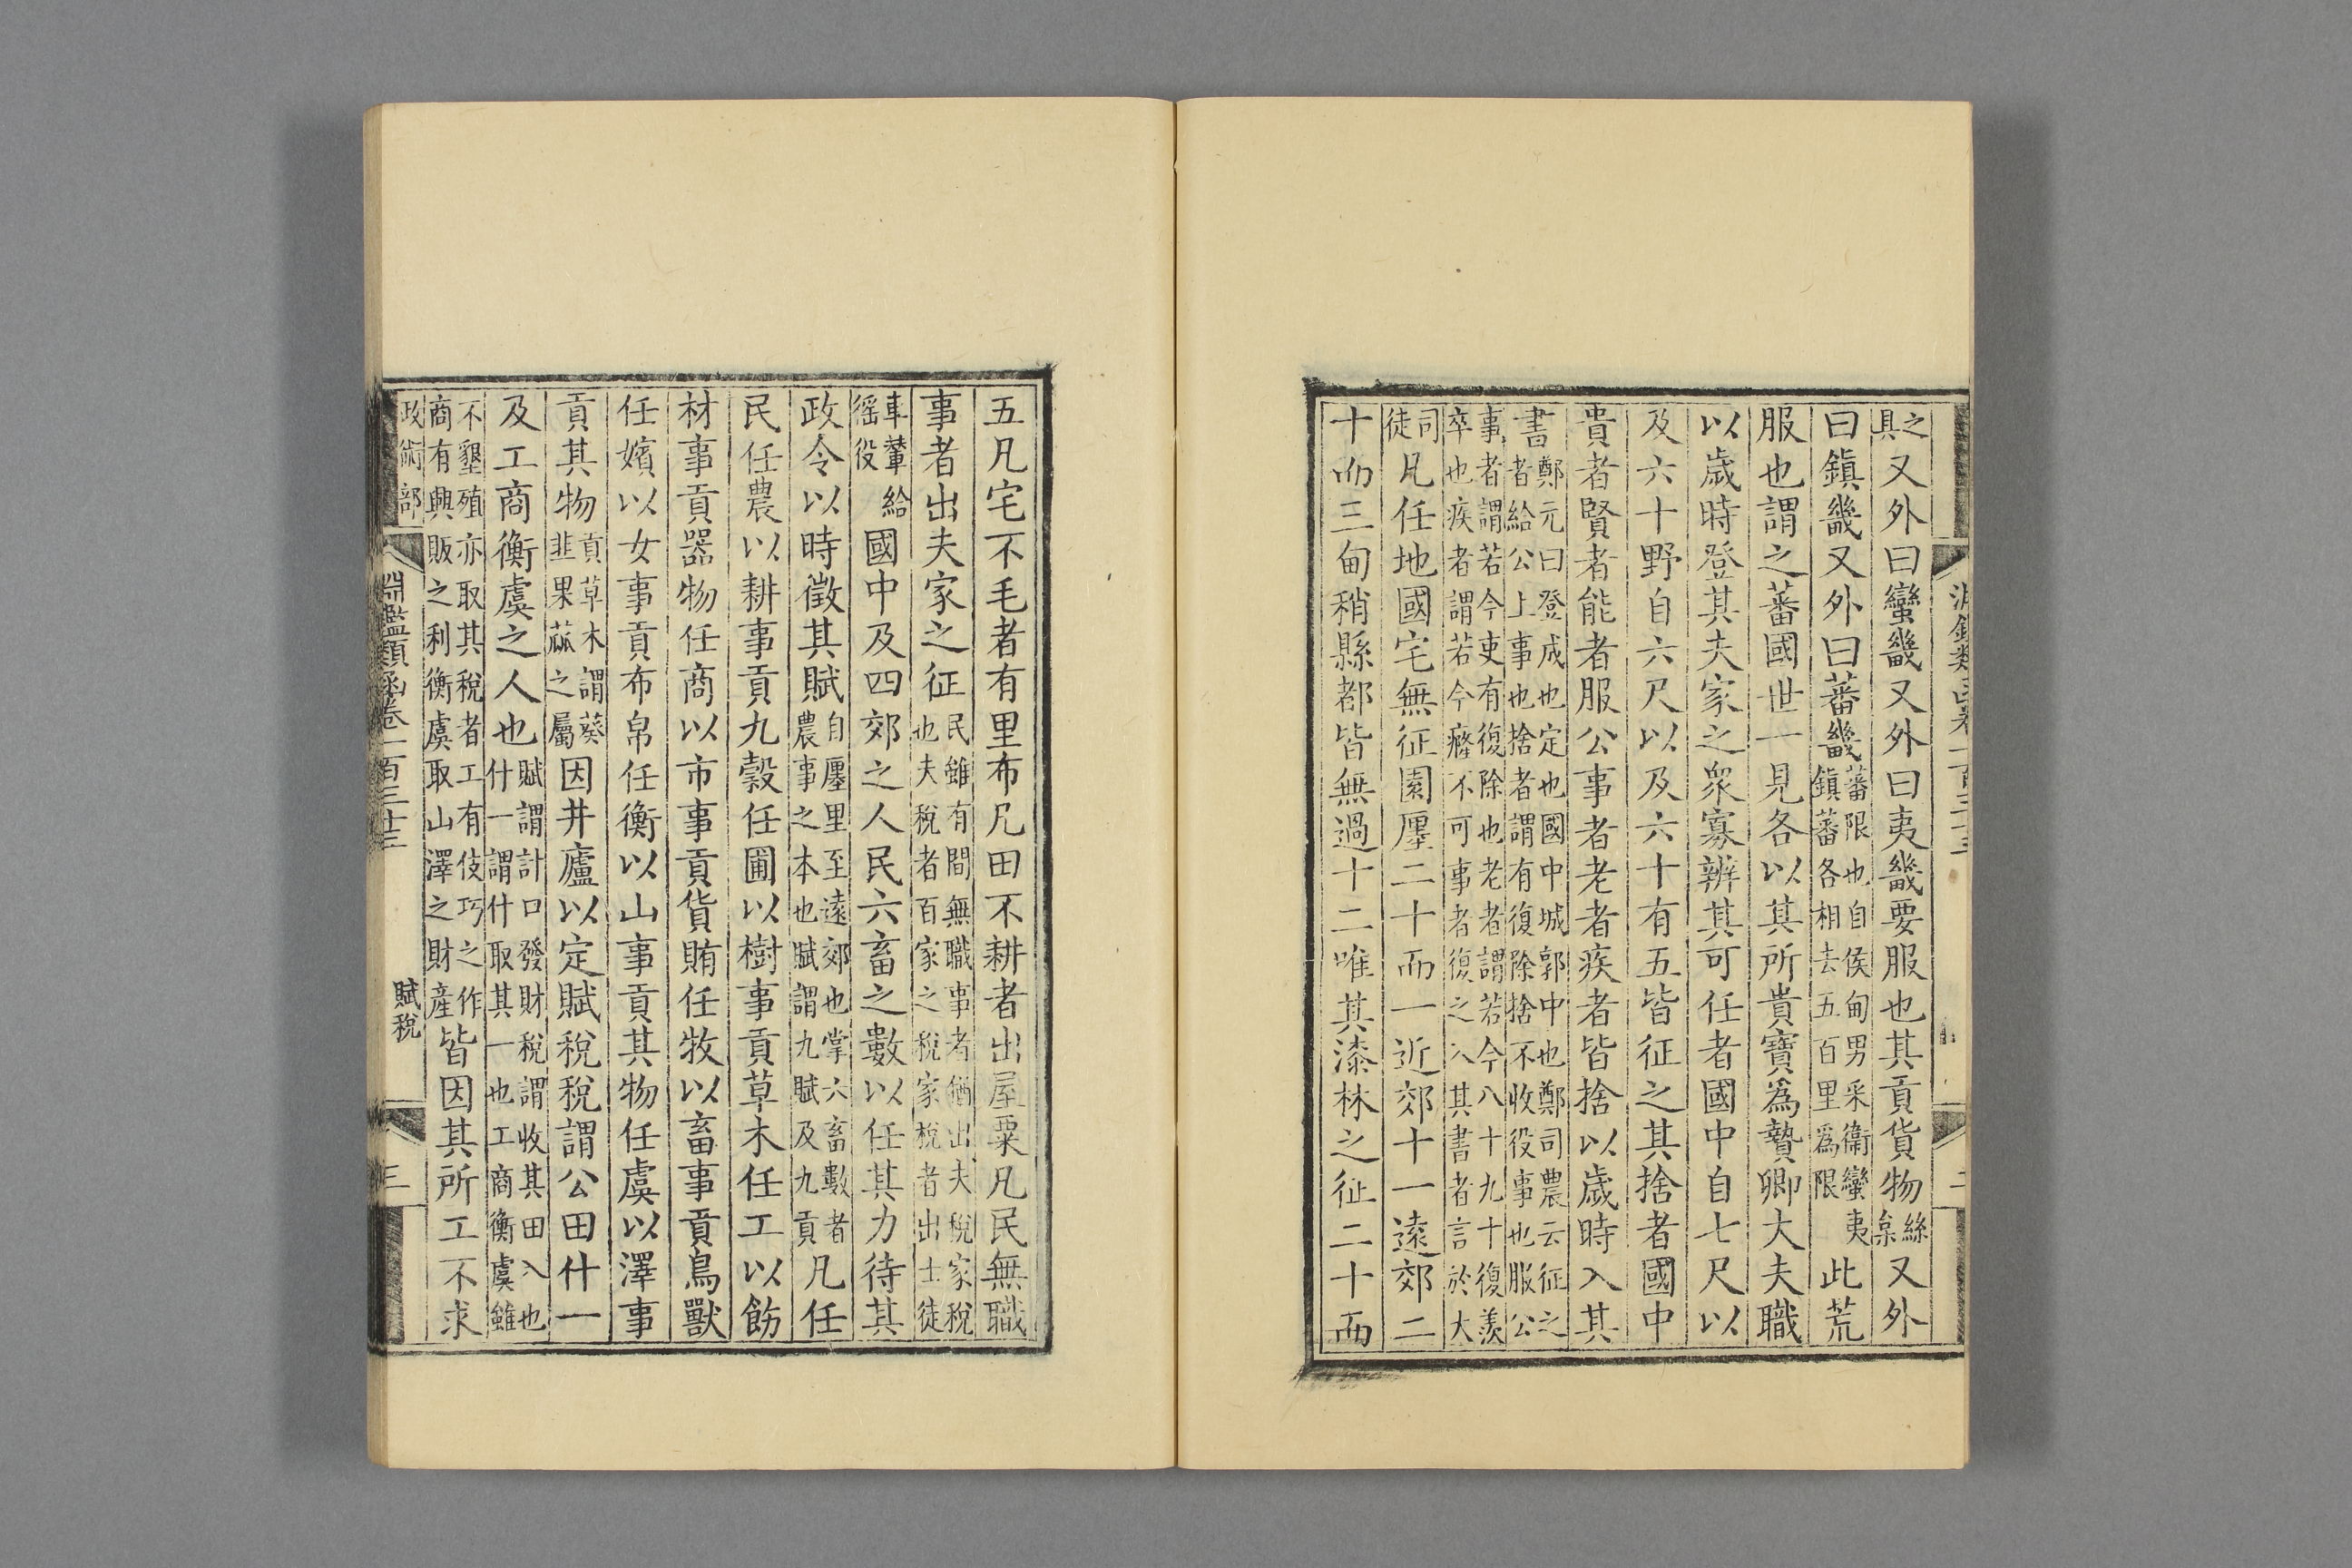 之具又外曰蠻畿又外曰夷畿要服也其貢貨物絲枲又外
曰鎮畿又外曰蕃畿蕃限也自侯甸男采衞蠻夷鎮蕃各相去五百里爲限此荒
服也謂之蕃國世一見各以其所貴寶爲贄卿大夫職
以歲時登其夫家之衆寡辨其可任者國中自七尺以
及六十野自六尺以及六十有五皆征之其捨者國中
貴者賢者能者服公事者老者疾者皆捨以歲時入其
書鄭元曰登成也定也國中城郭中也鄭司農云征之者給公上事也捨者謂有復除捨不收役事也服公
事者謂若今吏有復除也老者謂若今八十九十復羨卒也疾者謂若今癃不可事者復之入其書者言於大
司徒凡任地國宅無征園廛二十而一近郊十一遠郊二
十而三甸稍縣都皆無過十二唯其漆林之征二十而
五凡宅不毛者有里布凡田不耕者出屋粟凡民無職
事者出夫家之征民雖有間無職事者猶出夫稅家稅也夫稅者百家之稅家稅者出士徒
車輦給徭役國中及四郊之人民六畜之數以任其力待其
政令以時徵其賦自廛里至遠郊也掌六畜數者農事之本也賦謂九賦及九貢凡任
民任農以耕事貢九穀任圃以樹事貢草木任工以飭
材事貢器物任商以市事貢貨賄任牧以畜事貢鳥獸
任嬪以女事貢布帛任衡以山事貢其物任虞以澤事
貢其物貢草木謂葵韭果蓏之屬因井廬以定賦稅稅謂公田什一
及工商衡虞之人也賦謂計口發財稅謂收其田入也什一謂什取其一也工商衡虞雖
不墾殖亦取其稅者工有伎巧之作商有興販之利衡虞取山澤之財產皆因其所工不求
政術部 淵鑑類函卷一百三十三 賦稅 三